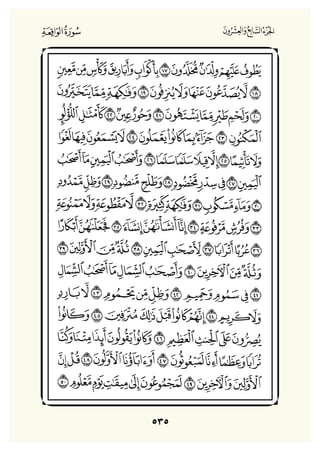 الجُزْءُ السَّابِعُ وَالعِشْرُونَ سُورَةُ الوَاقِعَةِ
يَطُوفُ عَلَيْهِمْ وِلْدَٰنٌ مُّخَلَّدُونَ ١٧ بِأَكْوَابٍ وَأَبَارِيقَ وَكَأْسٍ مِّن مَّعِينٍ
١٨ لَّا يُصَدَّعُونَ عَنْهَا وَلَا يُنزِفُونَ ١٩ وَفَٰكِهَةٍ مِّمَّا يَتَخَيَّرُونَ
٢٠ وَلَحْمِ طَيْرٍ مِّمَّا يَشْتَهُونَ ٢١ وَحُورٌ عِينٌ ٢٢ كَأَمْثَٰلِ ٱللُّؤْلُؤِ
ٱلْمَكْنُونِ ٢٣ جَزَآءًۢ بِمَا كَانُوا۟ يَعْمَلُونَ ٢٤ لَا يَسْمَعُونَ فِيهَا لَغْوًا
وَلَا تَأْثِيمًا ٢٥ إِلَّا قِيلًا سَلَٰمًا سَلَٰمًا ٢٦ وَأَصْحَٰبُ ٱلْيَمِينِ مَآ أَصْحَٰبُ
ٱلْيَمِينِ ٢٧ فِى سِدْرٍ مَّخْضُودٍ ٢٨ وَطَلْحٍ مَّنضُودٍ ٢٩ وَظِلٍّ مَّمْدُودٍ
٣٠ وَمَآءٍ مَّسْكُوبٍ ٣١ وَفَٰكِهَةٍ كَثِيرَةٍ ٣٢ لَّا مَقْطُوعَةٍ وَلَا مَمْنُوعَةٍ
٣٣ وَفُرُشٍ مَّرْفُوعَةٍ ٣٤ إِنَّآ أَنشَأْنَٰهُنَّ إِنشَآءً ٣٥ فَجَعَلْنَٰهُنَّ أَبْكَارًا
٣٦ عُرُبًا أَتْرَابًا ٣٧ لِّأَصْحَٰبِ ٱلْيَمِينِ ٣٨ ثُلَّةٌ مِّنَ ٱلْأَوَّلِينَ ٣٩
وَثُلَّةٌ مِّنَ ٱلْءَاخِرِينَ ٤٠ وَأَصْحَٰبُ ٱلشِّمَالِ مَآ أَصْحَٰبُ ٱلشِّمَالِ
٤١ فِى سَمُومٍ وَحَمِيمٍ ٤٢ وَظِلٍّ مِّن يَحْمُومٍ ٤٣ لَّا بَارِدٍ
وَلَا كَرِيمٍ ٤٤ إِنَّهُمْ كَانُوا۟ قَبْلَ ذَٰلِكَ مُتْرَفِينَ ٤٥ وَكَانُوا۟
يُصِرُّونَ عَلَى ٱلْحِنثِ ٱلْعَظِيمِ ٤٦ وَكَانُوا۟ يَقُولُونَ أَئِذَا مِتْنَا وَكُنَّا
تُرَابًا وَعِظَٰمًا أَءِنَّا لَمَبْعُوثُونَ ٤٧ أَوَءَابَآؤُنَا ٱلْأَوَّلُونَ ٤٨ قُلْ إِنَّ
ٱلْأَوَّلِينَ وَٱلْءَاخِرِينَ ٤٩ لَمَجْمُوعُونَ إِلَىٰ مِيقَٰتِ يَوْمٍ مَّعْلُومٍ ٥٠
٥٣٥